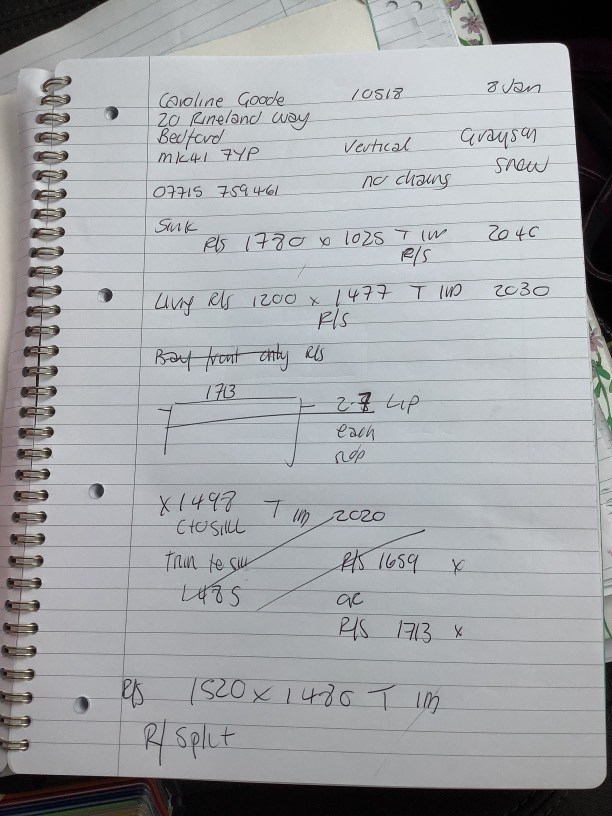 Caroline Goode 10518 8 Jan
20 Rineland Way
Bedford
MK41 7YP Vertical Grayson
no chains Snow
07715 759461
Sink
R/S 1780 x 1025 T 1m 2040
R/S
Living R/S 1200 x 1477 T 1m 2030
R/S
Bay front only R/S
1713
Lip
each
side
x 1498 T 1m 2020
C to sill
Trim to sill R/S 1659 x
1485 or
R/S 1713 x
R/S 1520 x 1480 T 1m
R/ Split